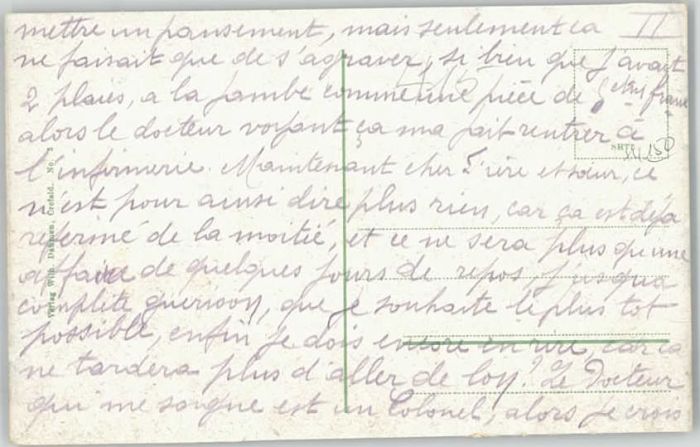 II
mettre un pansement, mais seulement ca
ne faisait que de s'agraver, si bien que j'avait
2 plaies, a la jambe comme une pièce de 5 et 1 franc
alors le docteur voyant ça ma fait rentrer à
l'infirmerie. Maintenant cher Frère et sœur, ce
n'est pour ainsi dire plus rien, car ça est déja
refermé de la moitié, et ce ne sera plus qu'une
affaire de quelques jours de repos, jusqua
complite guérison, que je souhaite le plus tot
possible, enfin je dois encore en rire car ca
ne tardera plus d'aller de Le Docteur
qui me soigne est un Colonel, alors je crois
Verlag Wilh. Dahmen, Crefeld, No.